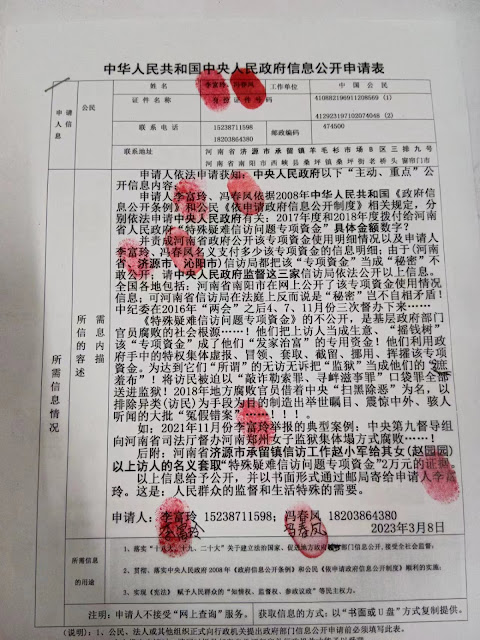 中华人民共和国中央人民政府信息公开申请表
申请人信息
公民
姓名 李富玲、冯春凤 工作单位 中国公民
证件名称 身份证件号码 410882196911208569 (1)
412923197102074048 (2)
联系电话 15238711598 邮政编码 474500
18203864380
联系地址 河南省济源市承留镇羊毛杉市场8区三排九号
河南省南阳市西峡县桑坪镇桑坪街老桥头窗帘门市
所需信息情况
所需信息的内容描述
申请人依法申请获知：中央人民政府以下“主动、重点”公
开信息内容：
申请人李富玲、冯春凤依据2008年中华人民共和国《政府信
息公开条例》和公民《依申请政府信息公开制度》相关规定，分
别依法申请中央人民政府有关：2017年度和2018年度拨付给河南
省人民政府“特殊疑难信访问题专项资金”具体金额数字？
并责成河南省政府公开该专项资金使用明细情况以及申请人
李富玲、冯春凤名义支付多少该专项资金的信息明细；由于(河南
省、济源市、沁阳市)信访局都把该“专项资金”当成“秘密”不
敢公开；请中央人民政府监督这三家信访局依法公开以上信息。
全国各地包括：河南省南阳市在网上公开了该专项资金使用情况
信息；可河南省信访局在法庭上反而说是“秘密”岂不自相矛盾！
中纪委在2016年“两会”之后4、7、11月份三次督办下来……
《特殊疑难信访问题专项资金》的不公开，是基层政府部门
官员腐败的社会根源……！他们把上访人当成生意、“摇钱树”
该“专项资金”成了他们“发家治富”的专用资金！他们利用政
府手中的特权集体虚报、冒领、套取、截留、挪用、挥攉该专项
资金。为达到它们“所谓”的无访无诉把“监狱”当成他们的“遮
羞布”！将访民被迫以“敲诈勒索罪、寻衅滋事罪”口袋罪全部
送进监狱！2018年地方腐败官员借着“扫黑除恶”为名，以
排除异己(访民)为手段为目的制造出举世瞩目、震惊中外、骇人
听闻的大批“冤假错案”……！！！。
如：2021年11月份李富玲举报的典型案例：中央第九督导组
向河南省司法厅督办河南郑州女子监狱集体塌方式腐败……！
后附：河南省济源市承留镇信访工作赵小军给其女(赵园园)
以上访人的名义套取“特殊疑难信访问题专项资金”2万元的证据。
以上信息给予公开，并以书面形式通过邮局寄给申请人李富
玲。这是：人民群众的监督和生活特殊的需要。
申请人：李富玲 15238711598；冯春凤 18203864380
李富玲 冯春凤 2023年3月8日
所需信息的用途
1、落实“十八大、十九、二十大”关于建立法治国家、促进地方政府部门信息公开，接受全社会监督；
2、贯彻、落实中央人民政府2008年《政府信息公开条例》和公民《依申请政府信息公开制度》顺利的实施；
3、实现《宪法》赋予人民群众的“知情权、监督权、参政议政”等民主权力。
注明：申请人不接受“网上查询”服务。 获取信息的方式：以“书面或U盘”方式复制提供。
(说明)：1、公民、法人或其他组织正式向行政机关提出政府部门信息公开申请前必须填写此表。